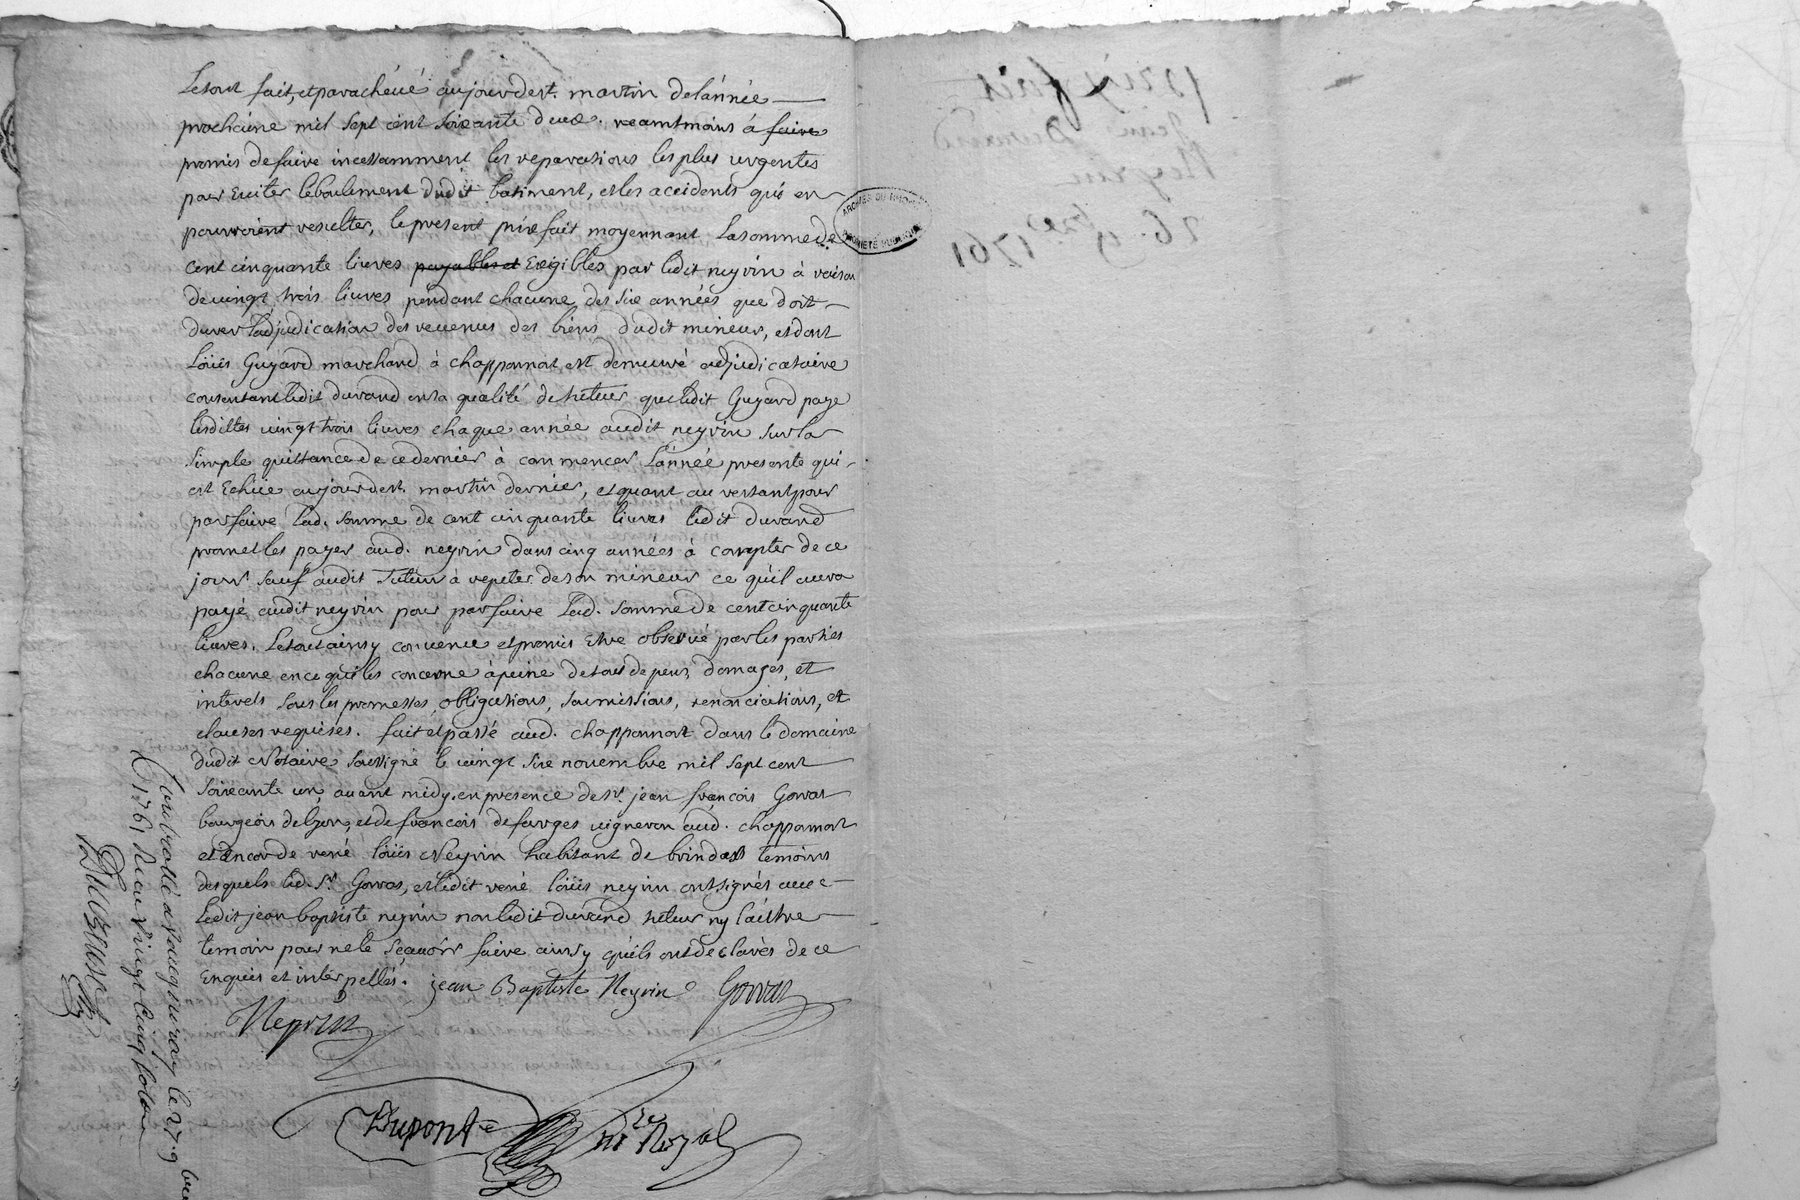 Letout fait, et parachéué aujour de st. martin de l'année
prochaine mil sept cent soixante deux. neamtmoins à faire
promis de faire incessamment les reparations les plus urgentes
pour Euiter leboulement dudit batiment, et les accidents qui en
pourroient resulter, le present prix fait moyennant la somme de
cent cinquante liures payables et Exigibles par ledit neyrin à raison
de uingt trois liures pendant chacune des six années que doit
durer l'adjudication des reuenus des biens dudit mineur, et dont
Loüis Guyard marchand à chapponnost est demeuré adjudicataire
consentant ledit durand en sa qualité de tuteur que ledit Guyard paye
lesdittes uingt trois liures chaque année audit neyrin sur la
simple quittance de ce dernier à commencer l'année presente qui
est Echüe aujour de st. martin dernier, et quant au restant pour
parfaire lad. somme de cent cinquante liures ledit durand
promet les payer aud. neyrin dans cinq années à compter de ce
jour sauf audit Tuteur à repeter de son mineur ce qu'il aura
payé audit neyrin pour parfaire lad. somme de cent cinquante
liures. Le tout ainsy conuenu et promis Etre obserué par les parties
chacune en ce qui les concerne à peine de tous depens, domages, et
interets sous les promesses, obligations, soumissions, renonciations, et
clauses requises. fait et passé aud. chapponnost dans le domaine
dudit Notaire soussigné le uingt six nouembre mil sept cent
soixante un auant midy. en presence de sr. jean françois Gorras
bourgeois de lyon, et de françois defarges uigneron aud. chapponnost
et encor de rené loüis Neyrin habitant de brindas temoins
desquels led. Sr. Gorras, et ledit rené loüis neyrin ont signés auec
ledit jean baptiste neyrin non ledit durand tuteur ny l'autre
temoin pour ne le sçauoir faire ainsy quils ont declarés de ce
Enquis et interpellés. jean Baptiste Neyrin Gorras
Neyrin
Dupont
nre Royal
Controllé à Vaugneray le 27. 9 bre
1761 Reçu Vingt Cinq sols
prix fait
Jean
Durand
Neyrin
26. 9bre 1761
ARCHIVES DU RHONE
PROPRIETE PUBLIQUE